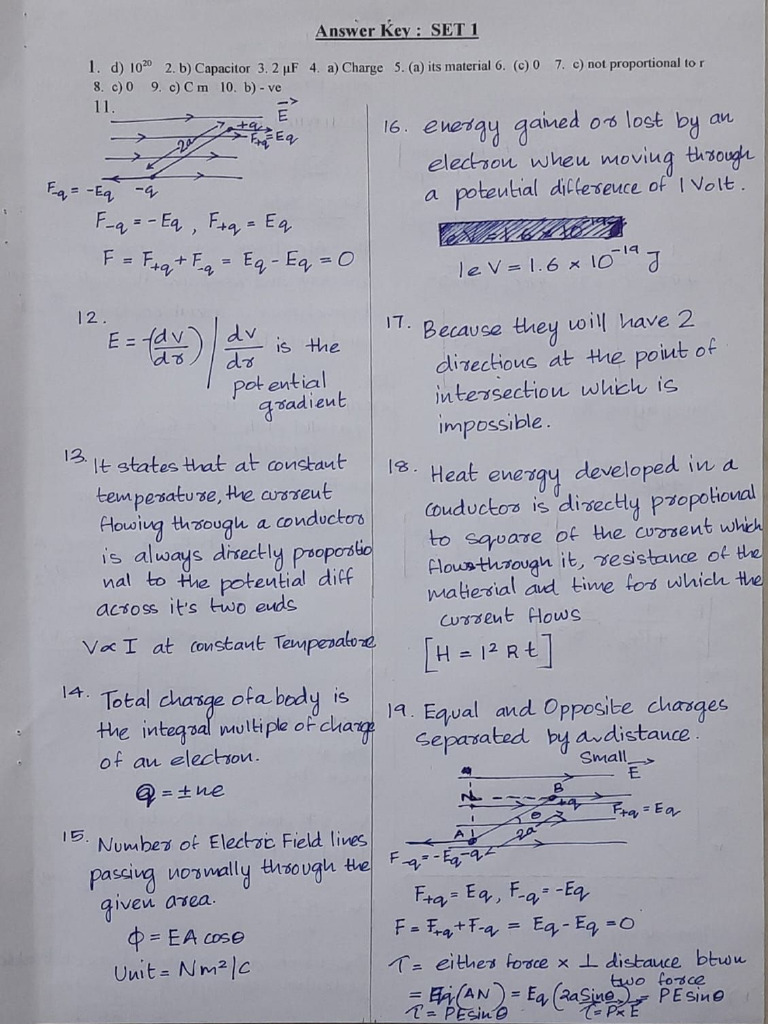 Answer Key : SET 1
1. d) 10²⁰ 2. b) Capacitor 3. 2 μF 4. a) Charge 5. (a) its material 6. (c) 0 7. c) not proportional to r
8. c) 0 9. c) C m 10. b) - ve
11.
E
+q
F+q = Eq
2a
F-q = -Eq -q
F-q = -Eq , F+q = Eq
F = F+q + F-q = Eq - Eq = 0
12.
E = -(dv/dr) | dv/dr is the
potential
gradient
13. It states that at constant
temperature, the current
flowing through a conductor
is always directly proportio
nal to the potential diff
across it's two ends
V∝ I at constant Temperature
14. Total charge of a body is
the integral multiple of charge
of an electron.
Q = ±ne
15. Number of Electric Field lines
passing normally through the
given area.
ϕ = EA cosθ
Unit = Nm²/C
16. energy gained or lost by an
electron when moving through
a potential difference of 1 Volt.
1eV = 1.6 × 10⁻¹⁹ J
17. Because they will have 2
directions at the point of
intersection which is
impossible.
18. Heat energy developed in a
conductor is directly propotional
to square of the current which
flows through it, resistance of the
material and time for which the
current flows
[H = I² R t]
19. Equal and Opposite charges
separated by a distance.
Small
E
N B
+q
F+q = Eq
θ
A 2a
F-q = -Eq -q
F+q = Eq, F-q = -Eq
F = F+q + F-q = Eq - Eq = 0
τ = either force × ⊥ distance btwn
two force
= Eq (AN) = Eq (2a Sinθ) = PE sinθ
τ = PE sinθ τ = P × E